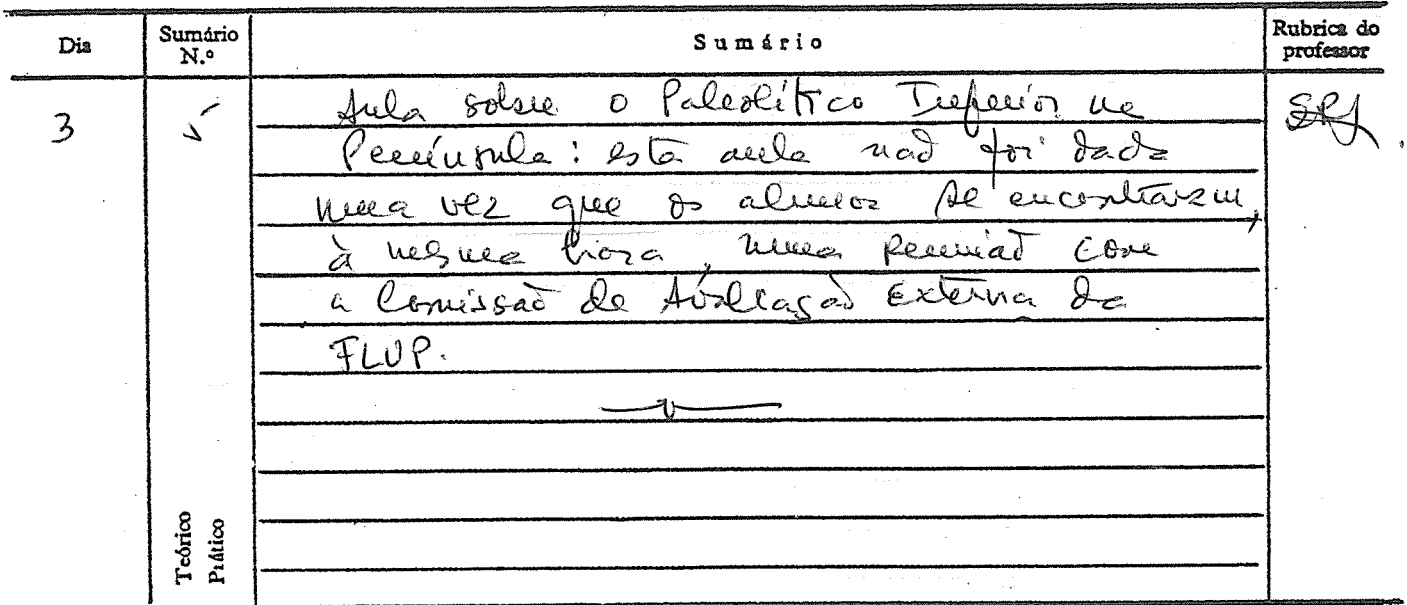 Dia Sumário N.º Sumário Rubrica do professor
3
Aula sobre o Paleolítico Inferior na
Península: esta aula não foi dada
uma vez que os alunos se encontravam,
à mesma hora, numa reunião com
a Comissão de Avaliação Externa da
FLUP.
Teórico
Prático